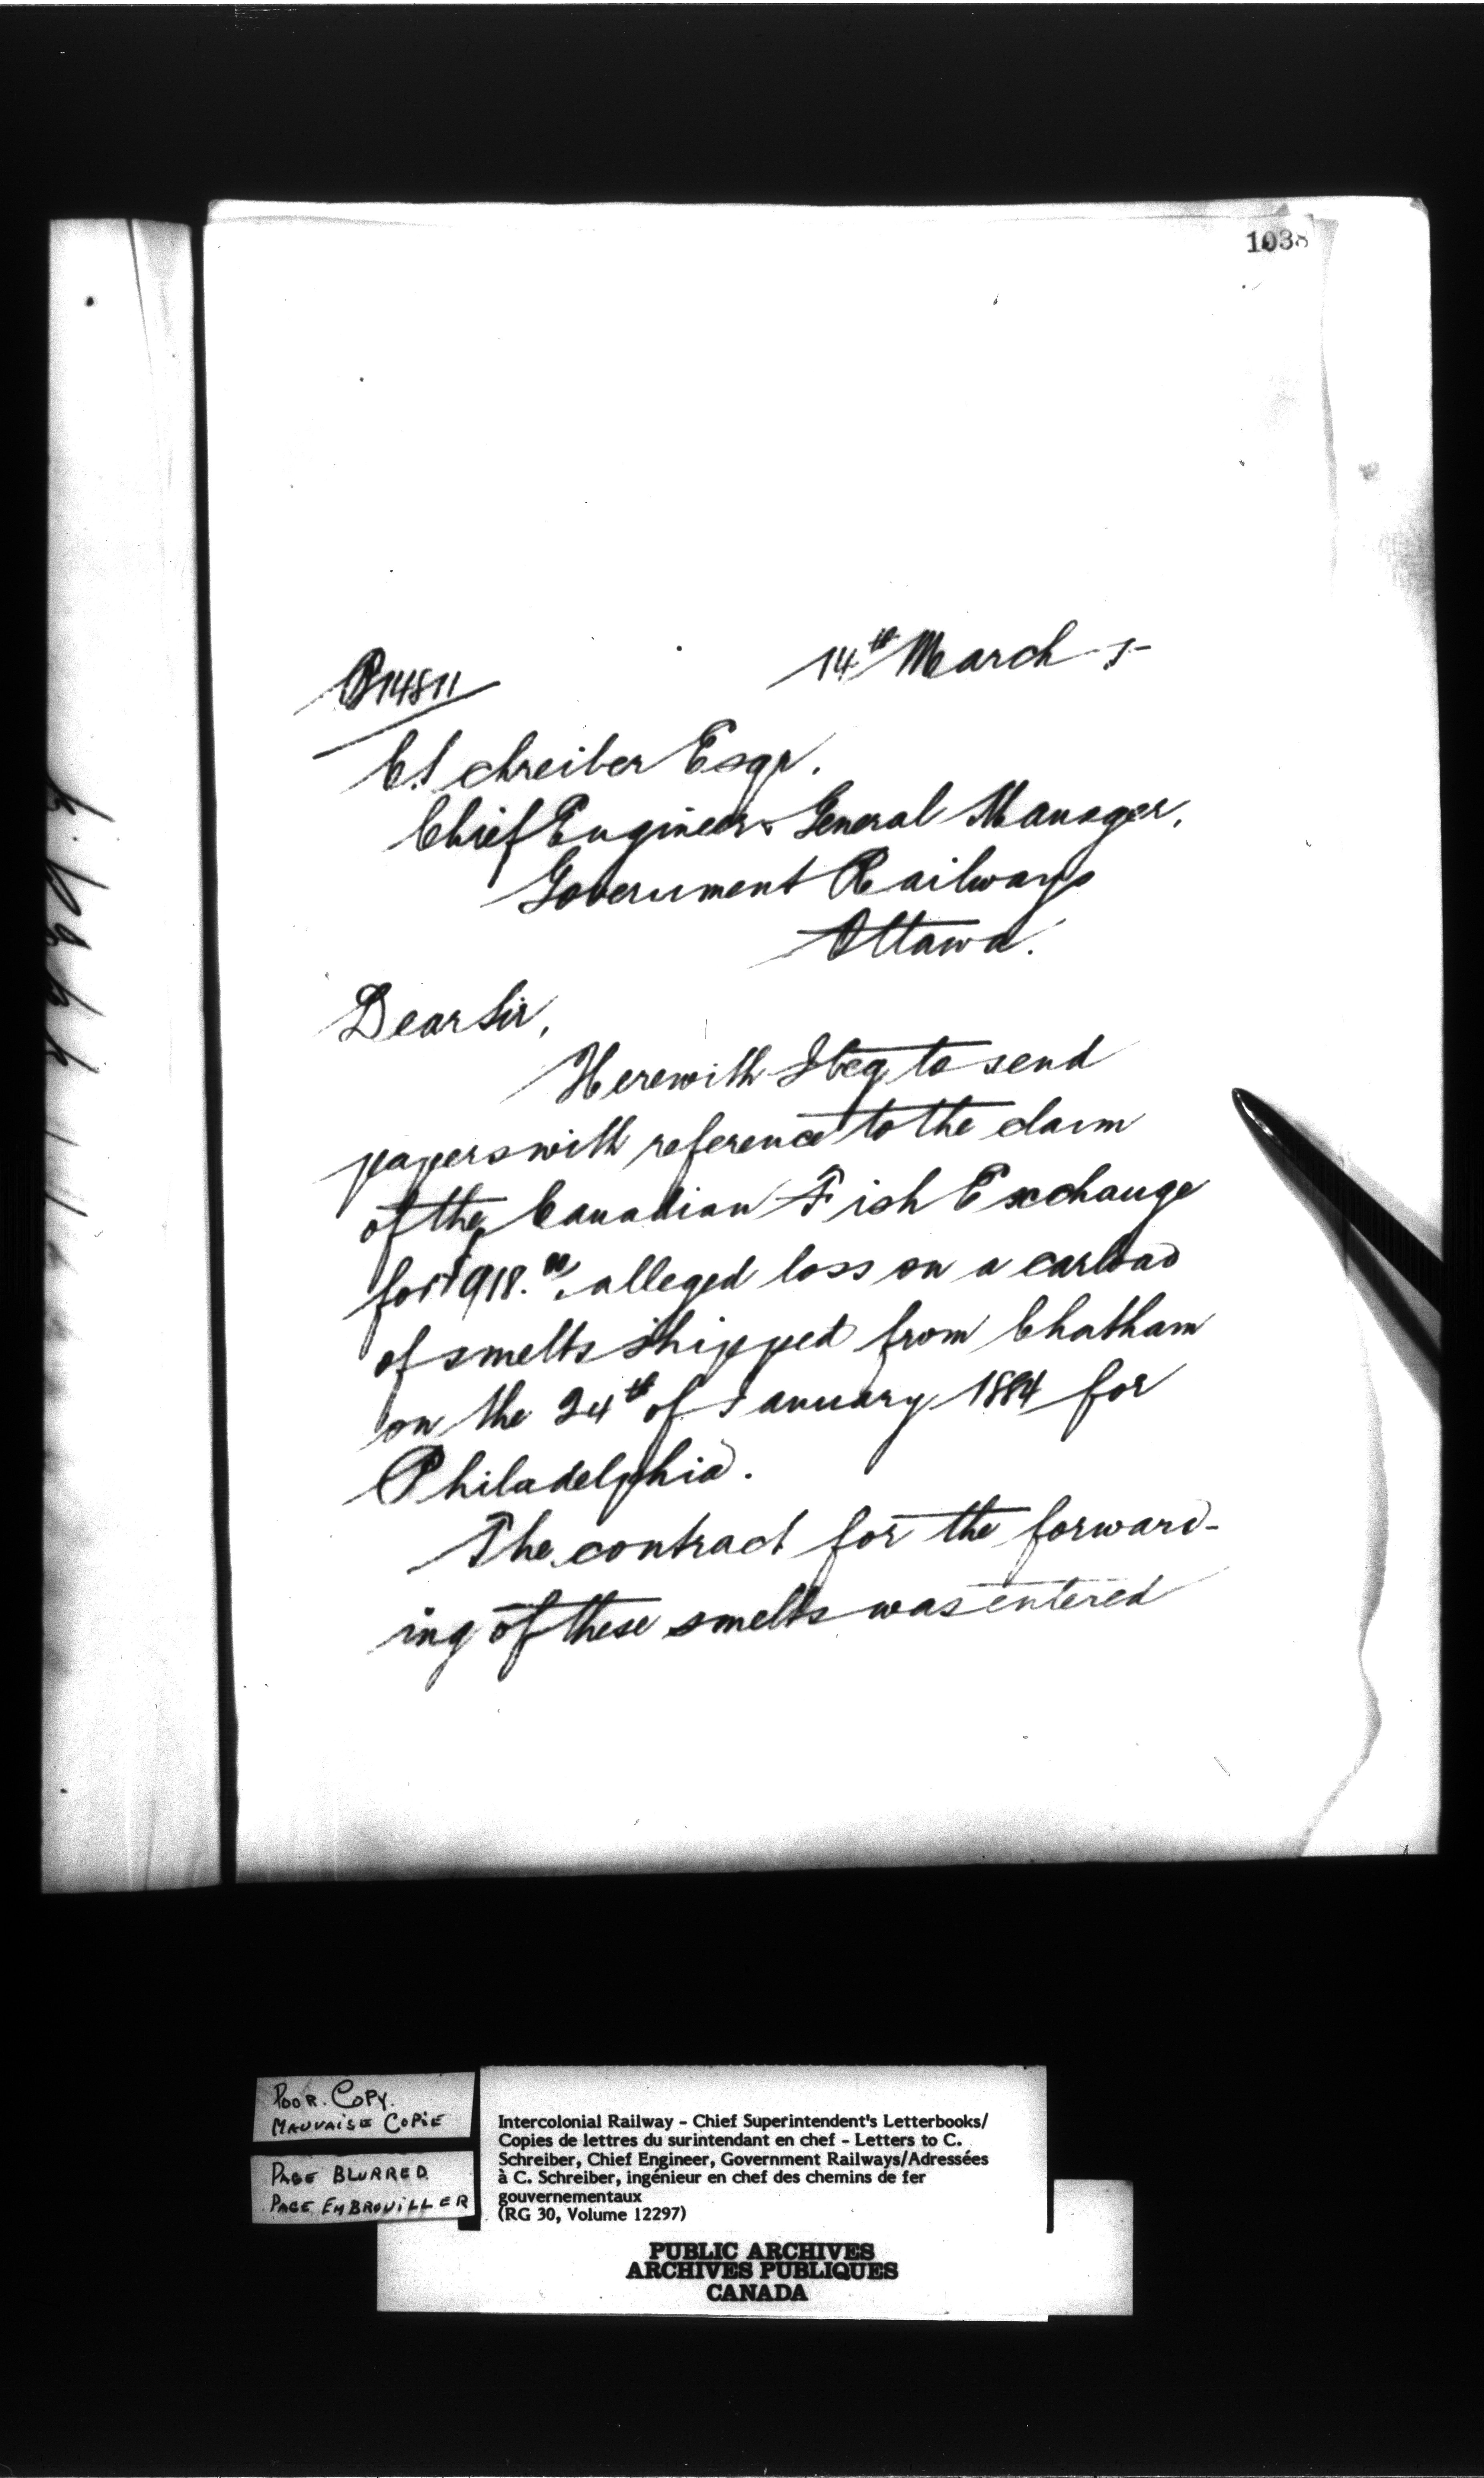 1038
14th March 5
P14811
C. Schreiber Esqr.
Chief Engineer & General Manager,
Government Railways
Ottawa.
Dear Sir,
Herewith I beg to send
papers with reference to the claim
of the Canadian Fish Exchange
for $918.00, alleged loss on a carload
of smelts shipped from Chatham
on the 24th of January 1884 for
Philadelphia.
The contract for the forward-
ing of these smelts was entered
POOR COPY.
MAUVAISE COPIE
PAGE BLURRED
PAGE EMBROUILLER
Intercolonial Railway - Chief Superintendent's Letterbooks/
Copies de lettres du surintendant en chef - Letters to C.
Schreiber, Chief Engineer, Government Railways/Adressées
à C. Schreiber, ingénieur en chef des chemins de fer
gouvernementaux
(RG 30, Volume 12297)
PUBLIC ARCHIVES
ARCHIVES PUBLIQUES
CANADA